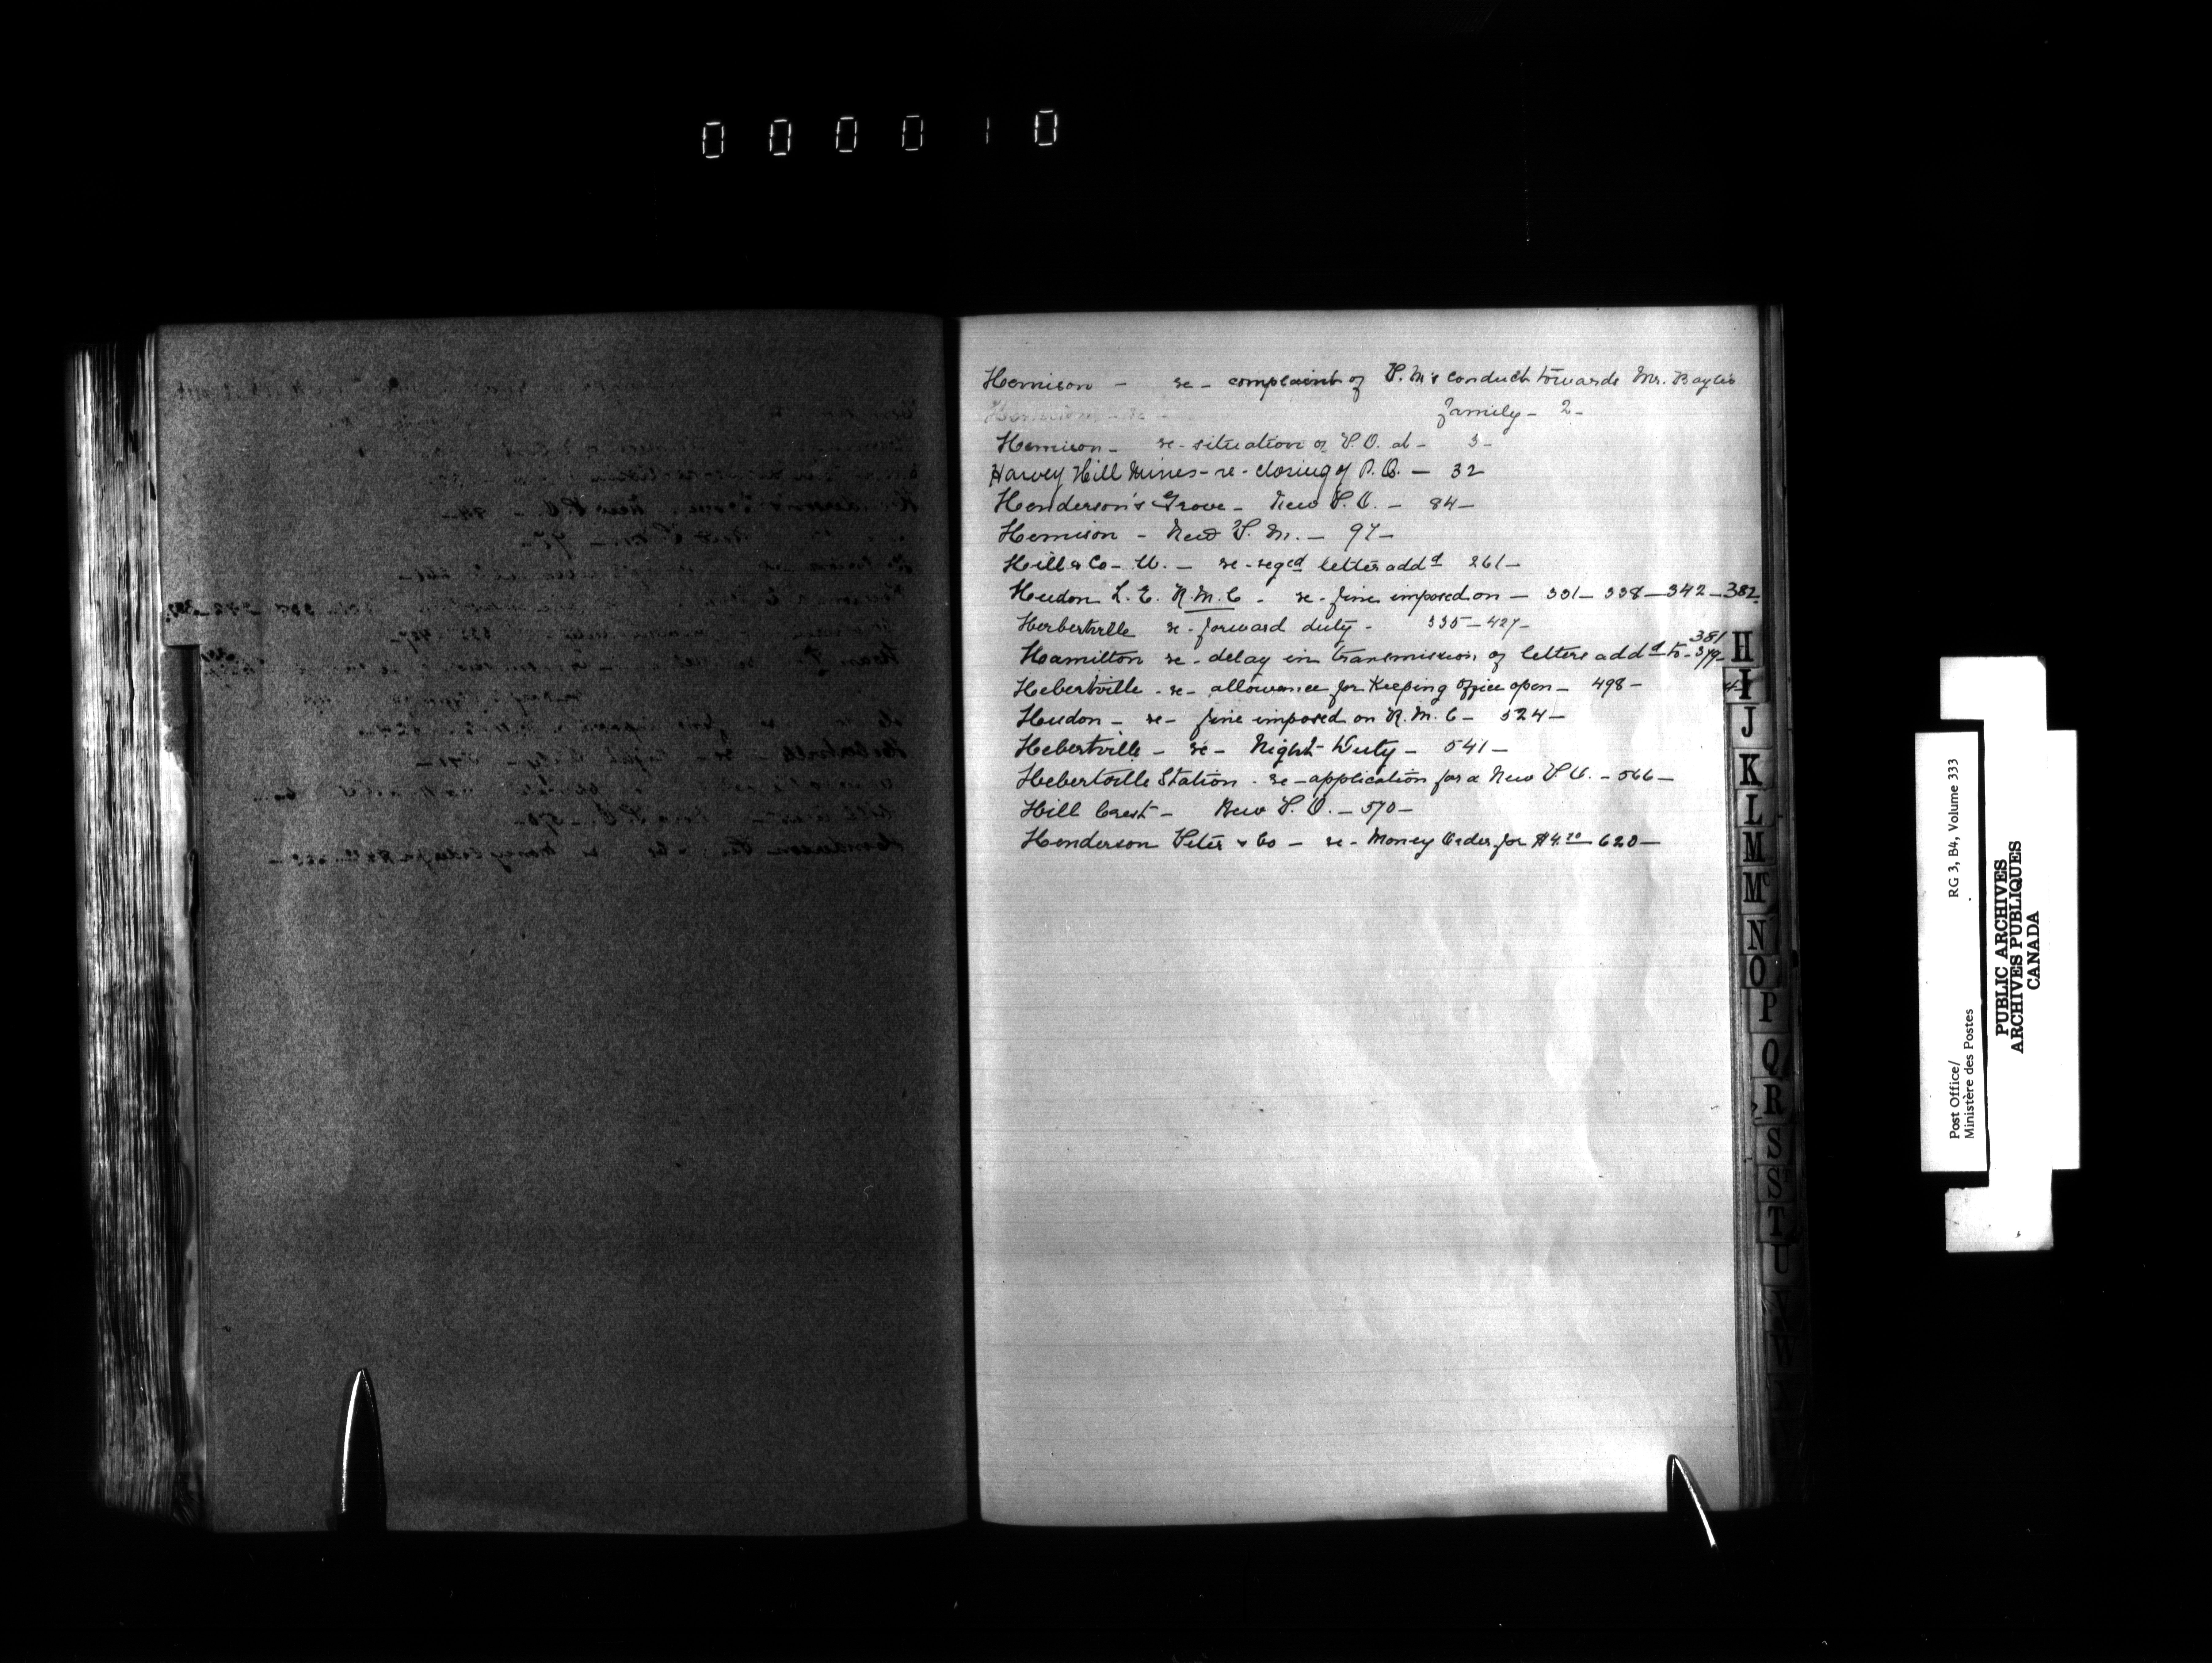 000010
Hemison - re - complaint of P.M's conduct towards Mr. Baylis
Hemison - re -
family - 2 -
Hemison - re - situation of P.O. at - 3 -
Harvey Hill Mines - re - closing of P.O. - 32
Henderson's Grove - New P.O. - 84 -
Hemison - New P.M. - 97 -
Hill & Co - W. - re - reg'ed letter add'd 261 -
Hudon L. E. R.M.C - re - fine imposed on - 331 - 338 - 342 - 382
Herbertville re - forward duty - 335 - 427 -
381
Hamilton re - delay in transmission of letters add'd to - 379 -
Hebertville - re - allowance for Keeping Office open - 498 -
Hudon - re - fine imposed on R.M.C - 524 -
Hebertville - re - Night Duty - 541 -
Hebertville Station - re - application for a New P.O. - 566 -
Hill Crest - New P.O. - 570 -
Henderson Peter & Co - re - Money Order for $4.20 - 620 -
H
I
J
K
L
M
Mc
N
O
P
Q
R
S
St
T
U
V
W
Y
Post Office/
Ministère des Postes
RG 3, B4, Volume 333
PUBLIC ARCHIVES
ARCHIVES PUBLIQUES
CANADA